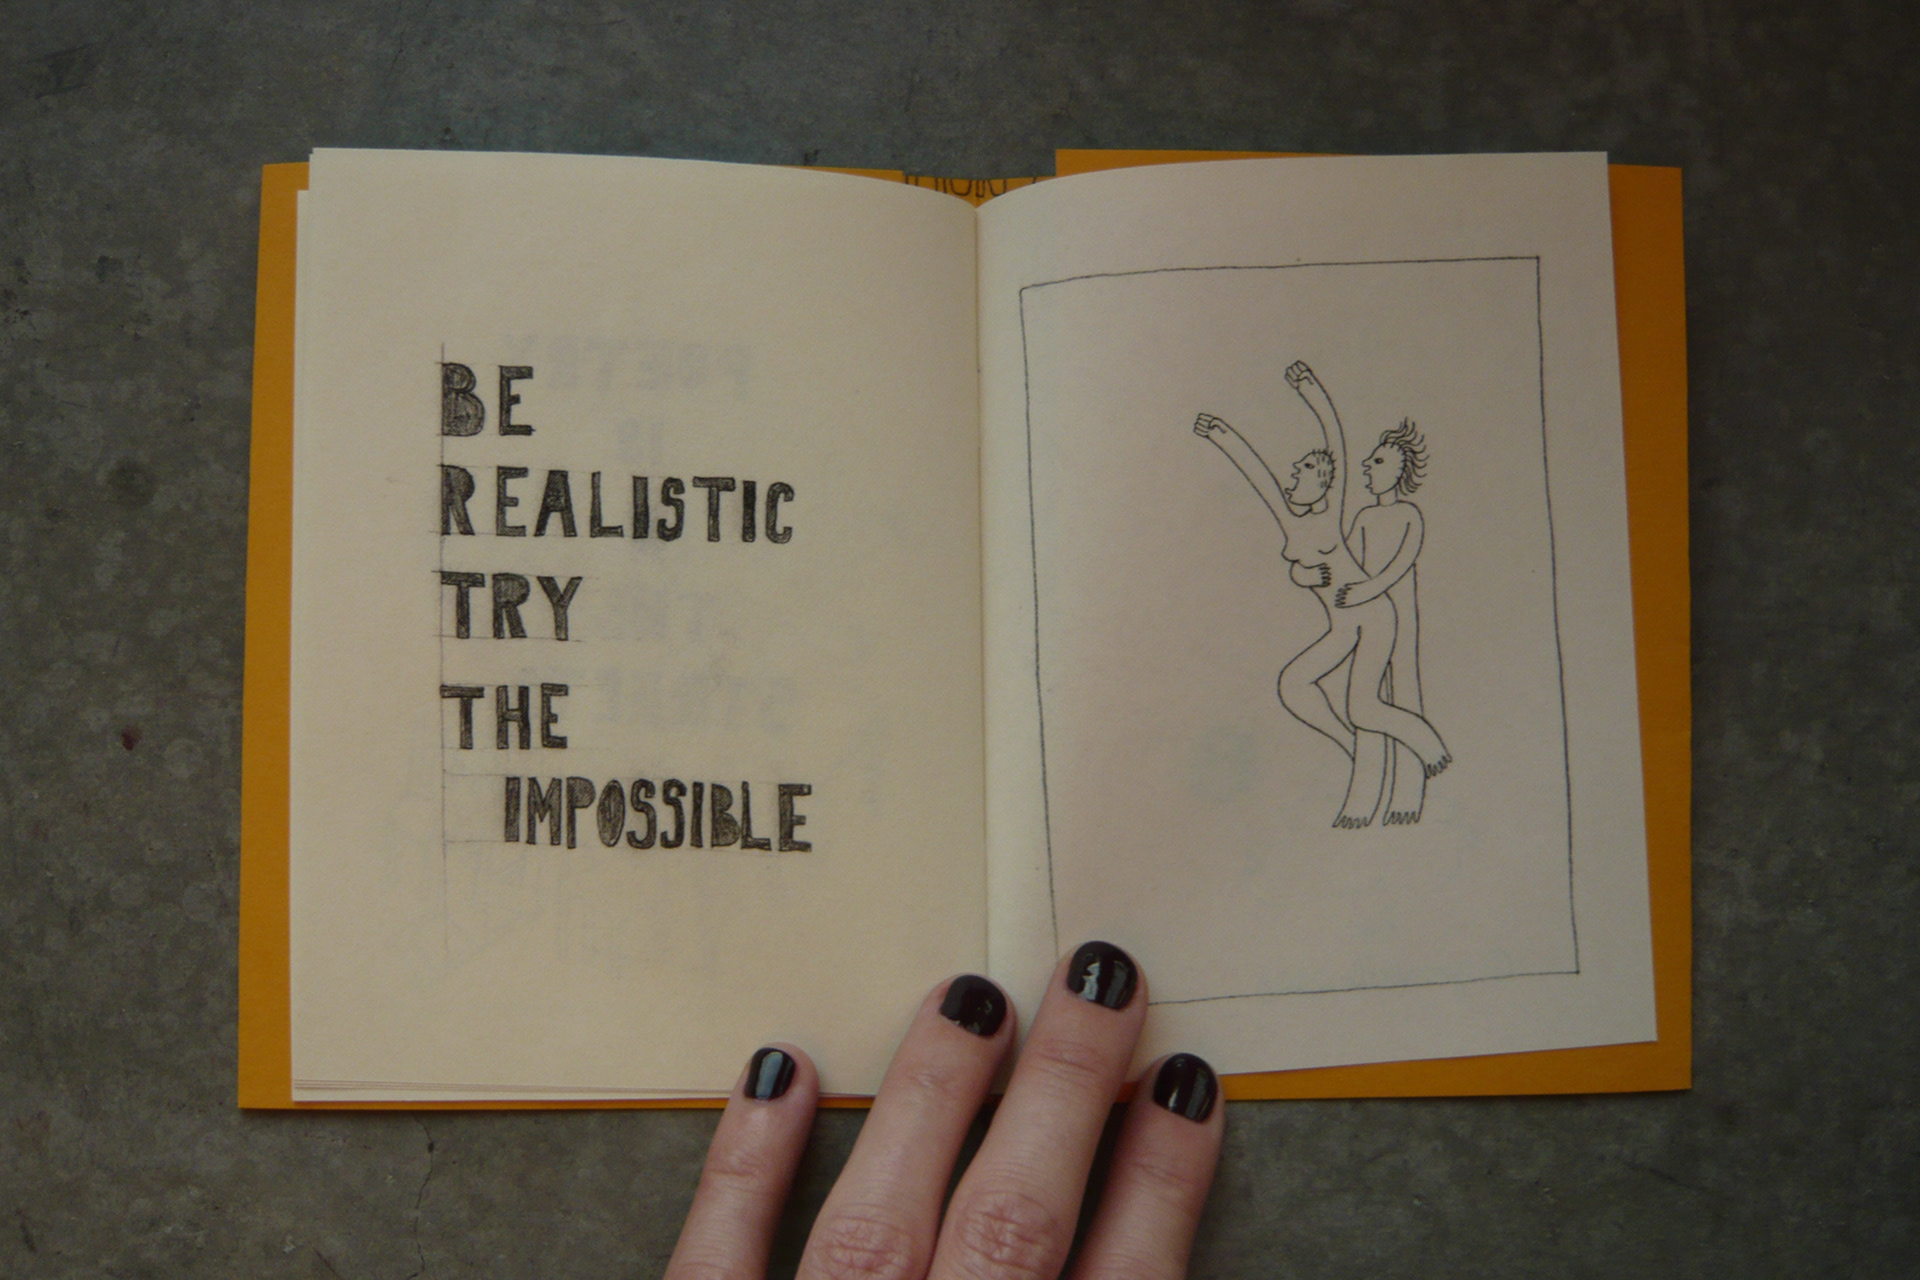 BE
REALISTIC
TRY
THE
IMPOSSIBLE